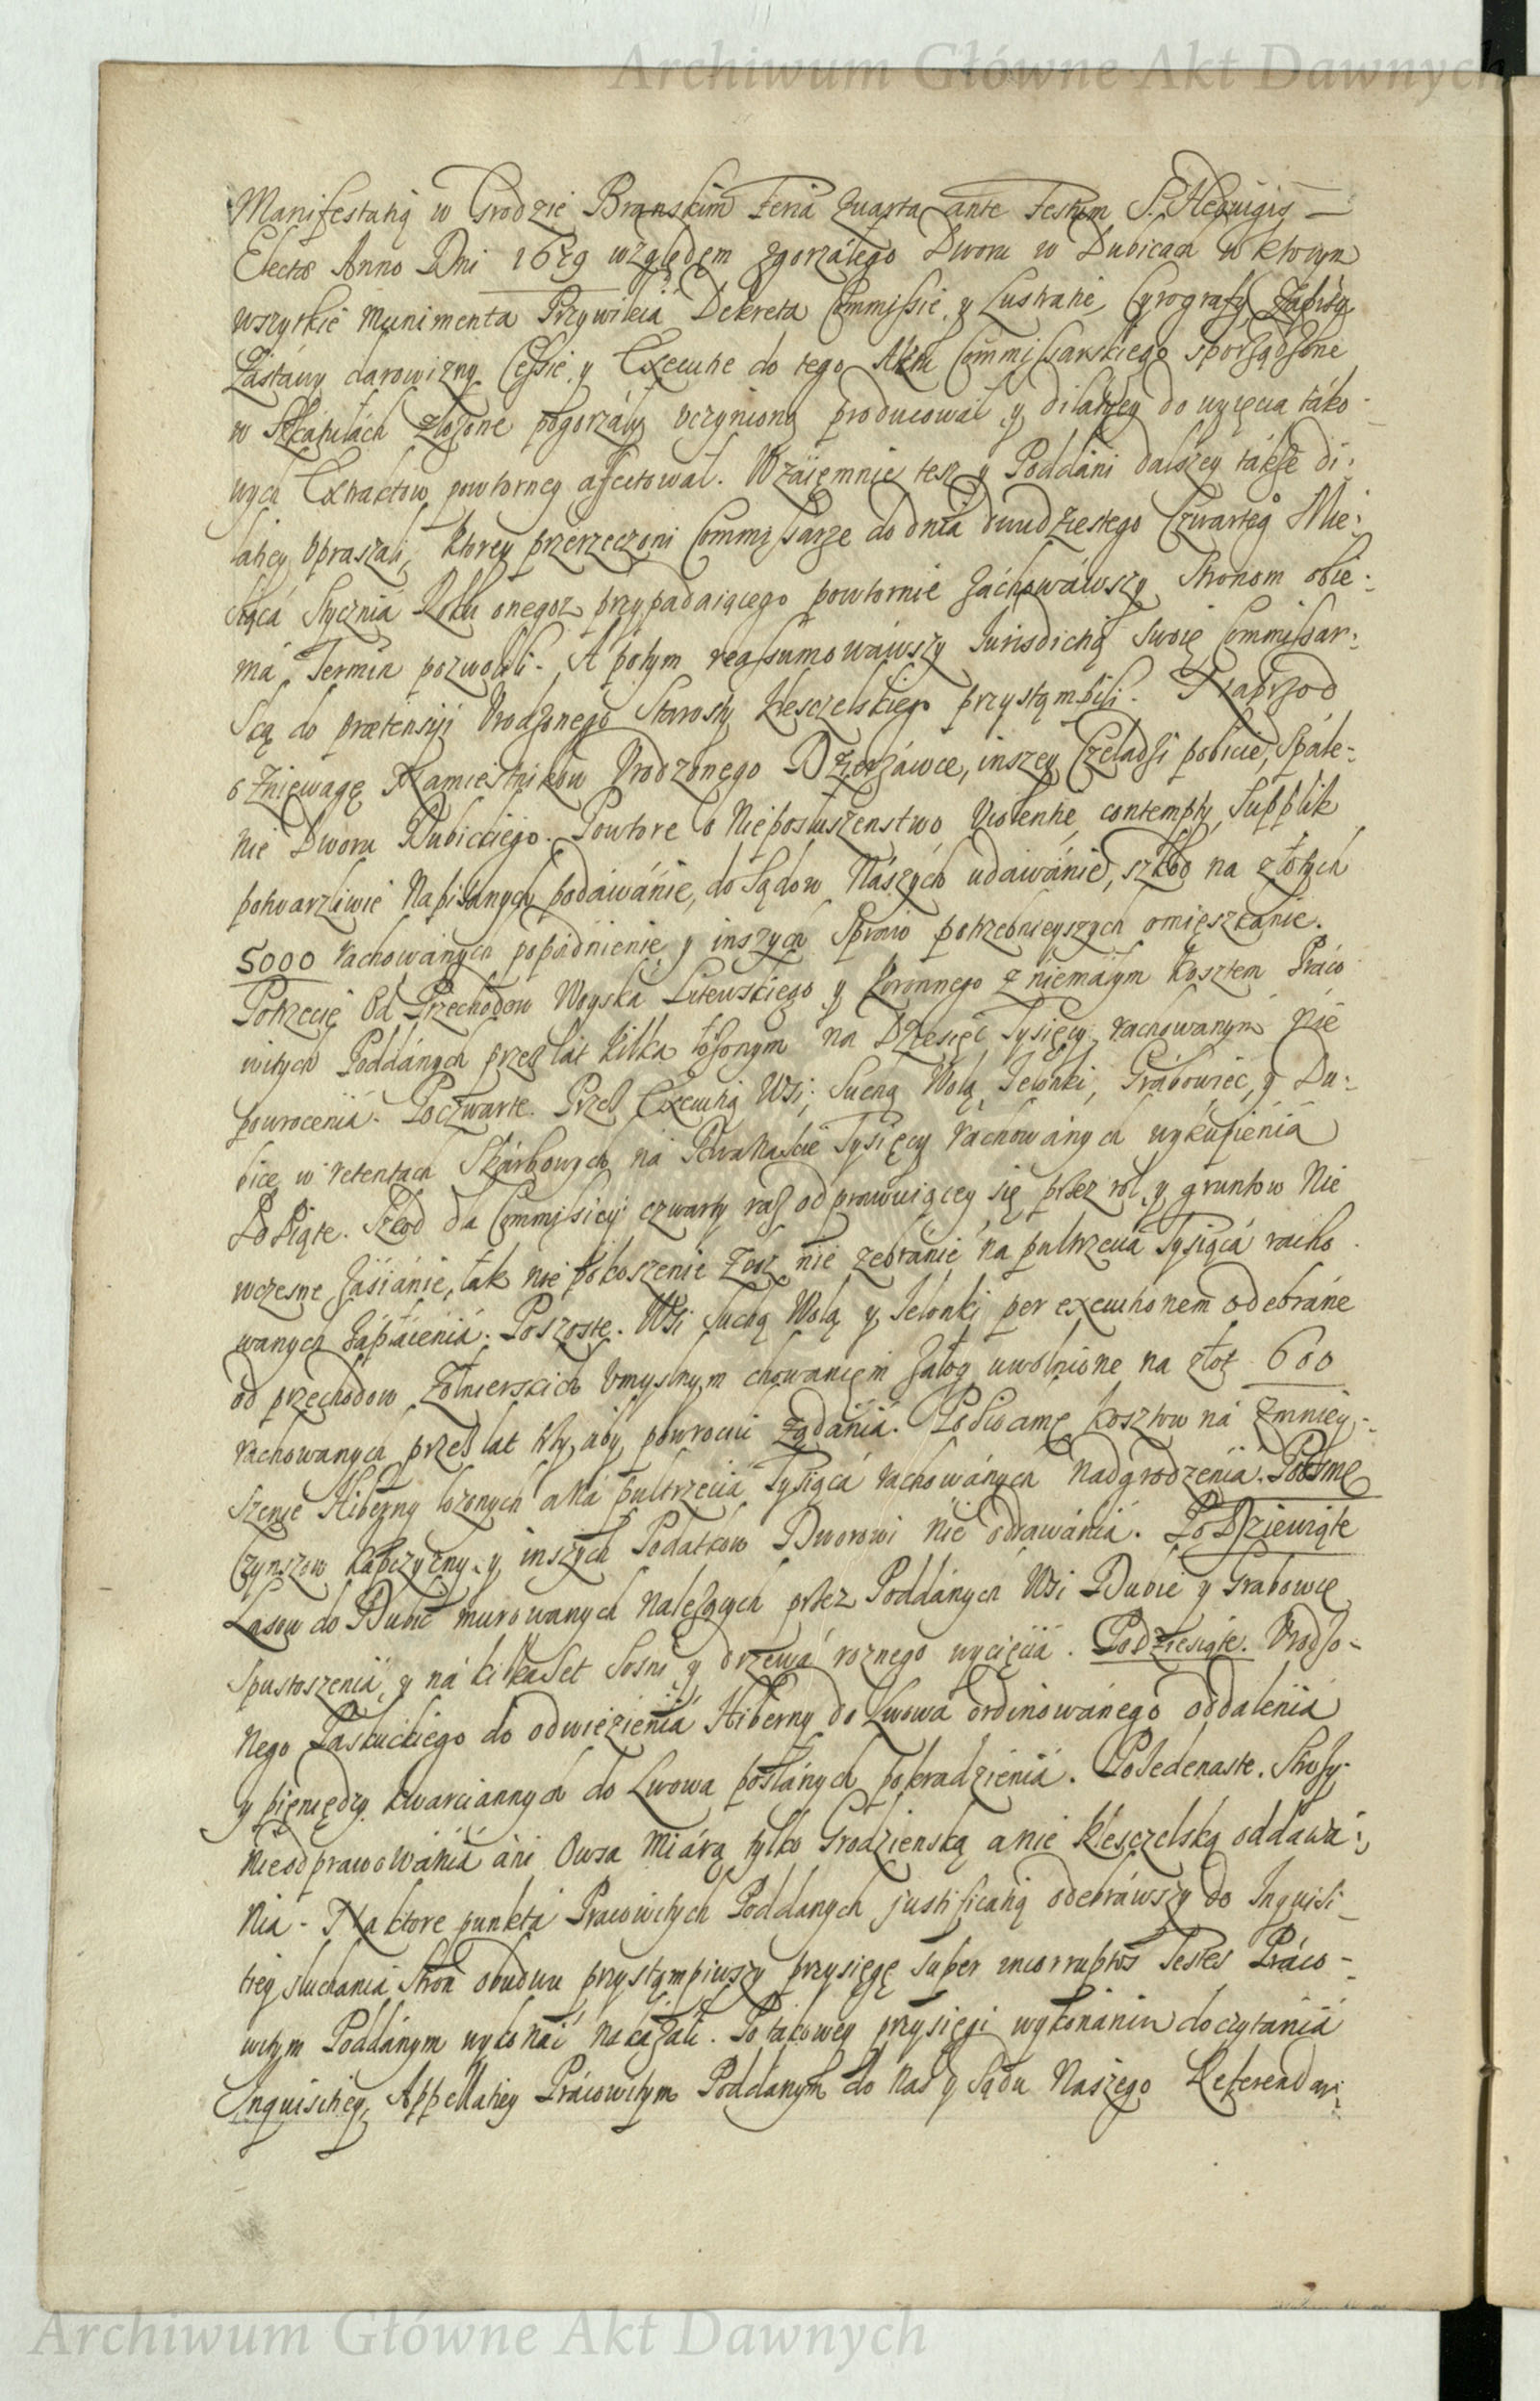 Archiwum Główne Akt Dawnych
Manifestatią w Grodzie Branskim Feria Quarta ante Festum S. Hedwigis
Electæ Anno Dni 1679 względem zgorzáłego Dworu w Dubicach w ktorym
wszytkie munimenta Przywileia Dekreta Commissie, y Lustratie, Cyrografy
Zástawy darowizny Cessie, y Executie do tego Aktu Commissarskiego sporządzone
w Szkátułách złożone pogorzáły vczynioną producował, y dilatiey do wyięcia táko-
wych Extraktow powtorney afectował. Wzáiemnie tesz y Poddáni dalszey tákże di-
latiey vpraszali, ktorey przerzeczoni Commissarze do dniá dwudziestego Czwarteg Mie-
siącá Stycznia Roku onegosz przypadaiącego powtornie záchowáwszy Stronom obie-
má Termin pozwolili. A potym reassumowáwszy Iurisdictią swoię Commissar-
ską do prætensyi Vrodzonego Starosty Kleszczelskiego przystąmpili. Naprzod
o Zniewagę Namiestnikow Vrodzonego Dzierżáwce, inszey Czeladzi pobicie, Spale-
nie Dworu Dubickiego. Powtore o Nieposłuszenstwo Violentie, contempty, Supplik
potwarzliwie Napisanych podáwánie, do Sądow Nászych udawánie, szkod na złotych
5000 rachowánych popádnienie y inszych Spraw potrzebnieyszych omięszkanie.
Potrzecie Od Przechodow Woyska Litewskiego y Koronnego z niemáłym Kosztem Práco
witych Poddánych przez lát kilka łożonym na Dziesięć Tysięcy rachowanym nie
powrocenia. Poczwarte. Przez Executią Wsi, Suchą Wolą, Ielonki, Grábowiec, y Du-
bice w retentach Skárbowych ná Dwanascie Tysięcy ráchowánych wykupienia
Po Piąte. Szkod dla Commissiey czwarty raz odprawuiącey się przez rol, y gruntow Nie
wczesne Zásiánie, łąk nie pokoszenie Zboż nie zebránie na pułtrzecia Tysiącá racho
wanych Zápłácenia. Poszoste. Wsi Suchą Wolą y Ielonki per executionem odebráne
od przechodow Zołnierskich Vmyslnym chowaniem Załog uwolnione na złot 600
rachowanych przez lat trzy, áby powrocili żądánia. Posiodme kosztow ná zmniey-
szenie Hiberny łożonych a ná pułtrzecia Tysiącá rachowánych Nadgrodzenia. Posme
Czynszow Kápczyzny, y inszych Podatkow Dworowi nie oddawánia. Po Dziewiąte
Lasow do Dubic murowanych Nalezących przez Poddánych Wsi Dubic y Grabowcę
Spustoszenia, y ná kilkaset Sosni y drzewá roznego wycięcia. Po Dziesiąte. Vrodzo-
nego Laskuckiego do odwiezienia Hiberny do Lwowá ordinowánego oddalenia
y pieniędzy kwarciannych do Lwowa posłánych pokradzienia. Poiedenaste. Strozy-
Nieodprawowánia áni Owsa miárą tylko Grodzienską a nie kleszczelską oddawá-
nia. Na ktore punktá Pracowitych Poddanych justificatią odebráwszy do Inquisi-
tiey słuchania Stron obudwu przystąmpiwszy przysięgę super incorruptos Testes Práco-
witym Poddánym wykonáć nakazáli. Po takowey przysięgi wykonániu do czytania
Inquisitiey, Appellatiey Prácowitym Poddanym do Nas y Sądu Naszego Referendar-
Archiwum Główne Akt Dawnych